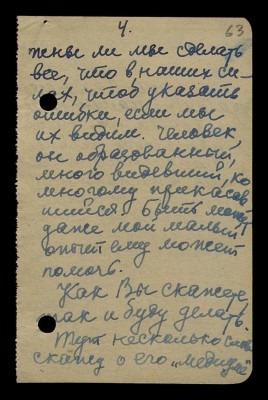 4.
63
жны ли мы сделать
все, что в наших си-
лах, чтоб указать
ошибки, если мы
их видим. Человек
он образованный,
много видевший, ко
многому прикасав
шийся. Быть может
даже мой малый
опыт ему может
помочь.
Как Вы скажете,
так и буду делать.
Тут несколько слов
скажу о его „Медузе"